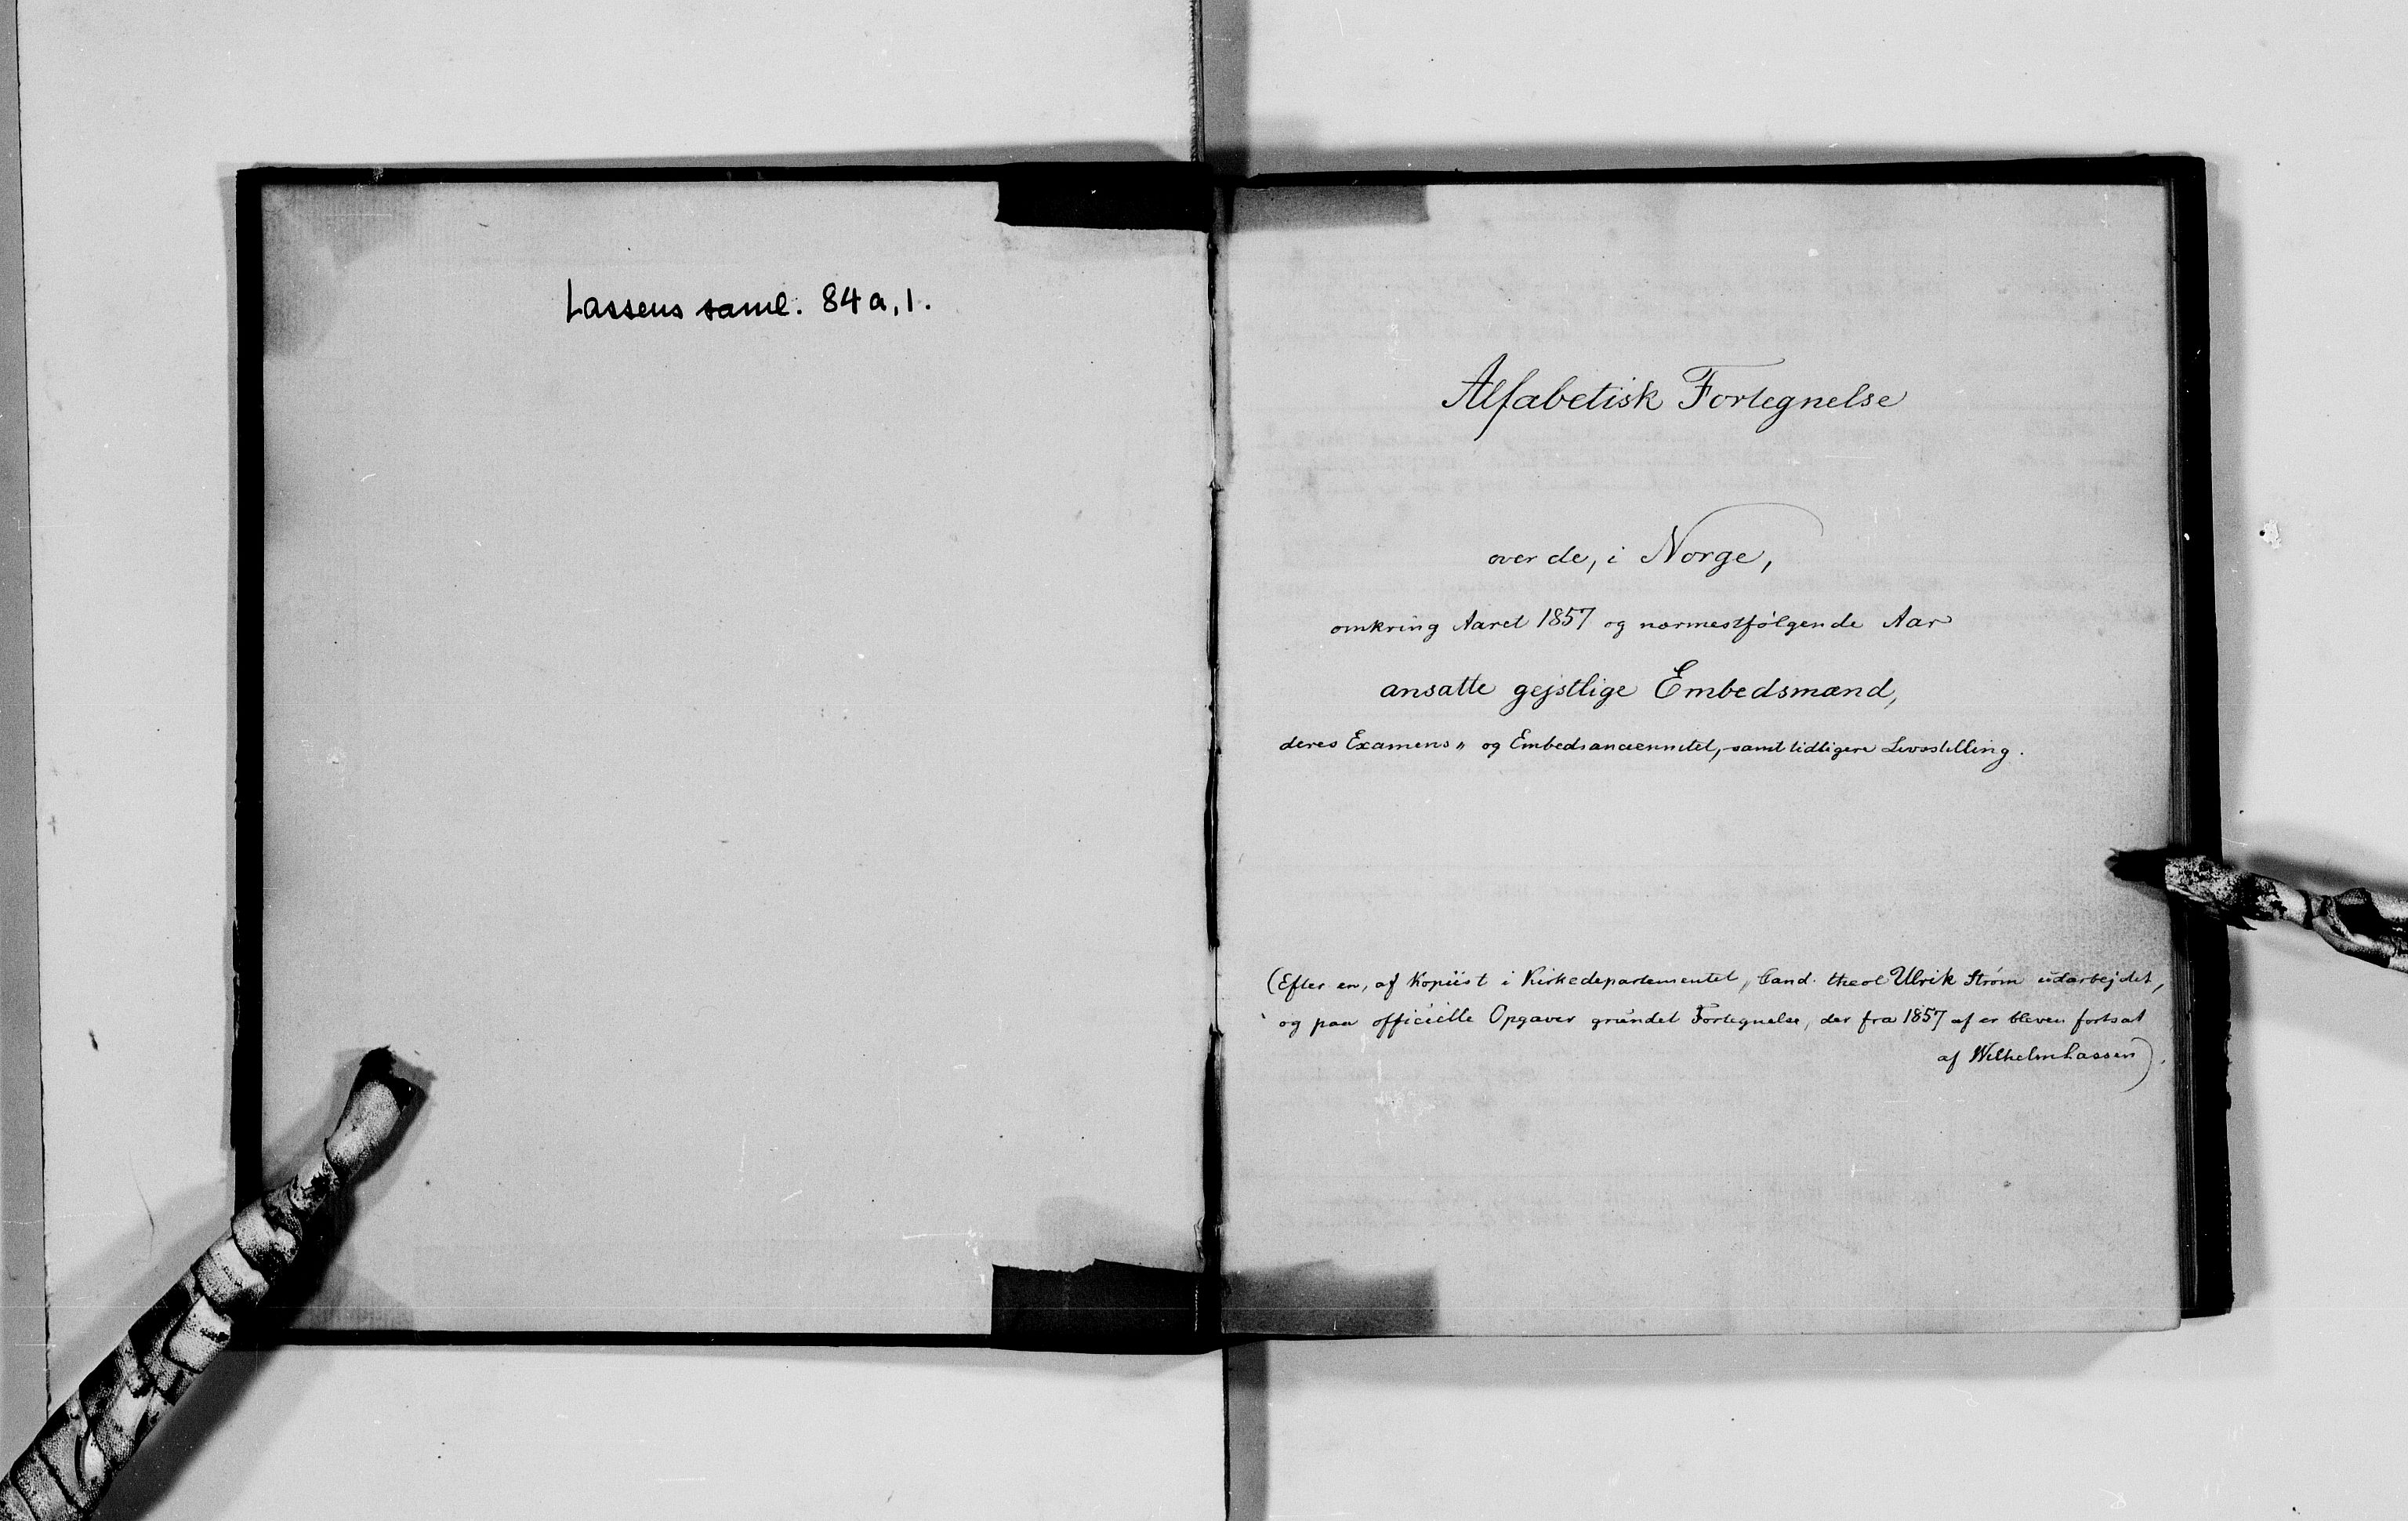 Lassens saml. 84 a, 1.
Alfabetisk Fortegnelse
over de, i Norge,
omkring Aaret 1857 og nærmestfølgende Aar
ansatte gejstlige Embedsmænd,
deres Examens" og Embedsanciennitet, samt tidligere Livsstilling.
(Efter en, af Kopiist i Kirkedepartementet, Cand. theol Ulrik Strøm udarbejdet,
og paa officielle Opgaver grundet Fortegnelse, der fra 1857 af er bleven fortsat
af Wilhelm Lassen).